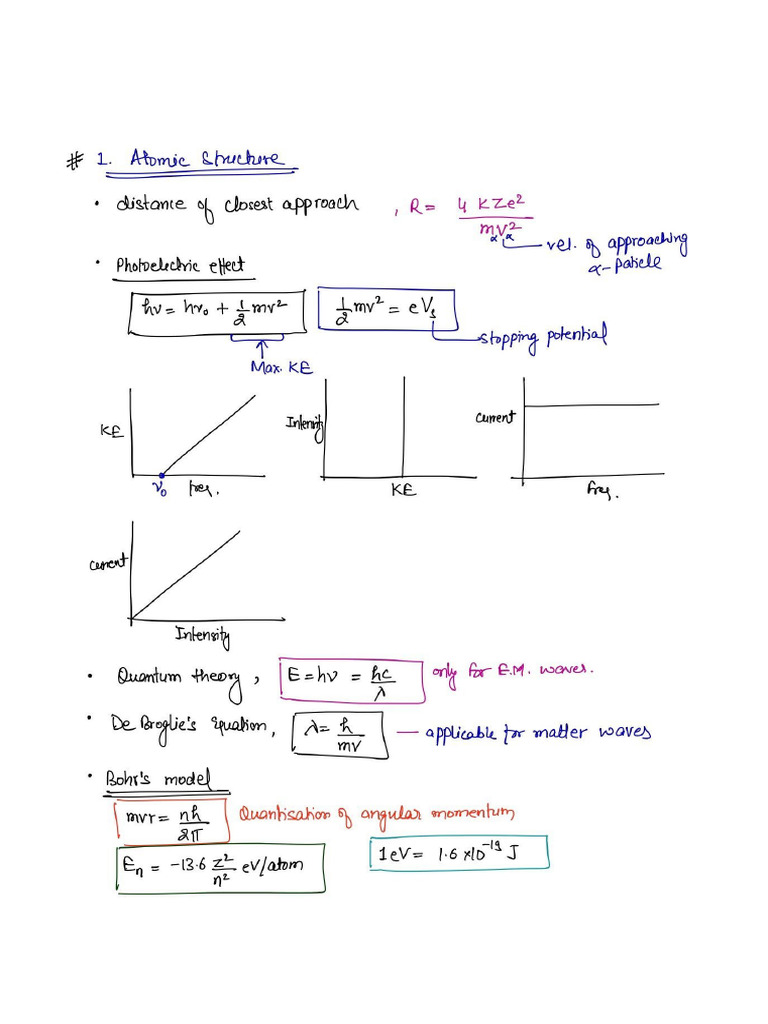 # 1. Atomic Structure
• distance of closest approach , R = 4 KZe² / mαvα²
vel. of approaching
α-paticle
• Photoelectric effect
hν = hν₀ + 1/2 mv²
1/2 mv² = eVs
stopping potential
Max. KE
KE
ν₀ freq.
Intensity
KE
current
freq.
current
Intensity
• Quantum theory, E = hν = hc/λ only for E.M. waves.
• De Broglie's Equation, λ = h/mv — applicable for matter waves
• Bohr's model
mvr = nh/2π Quantisation of angular momentum
En = -13.6 z²/n² eV/atom
1eV = 1.6 × 10⁻¹⁹ J